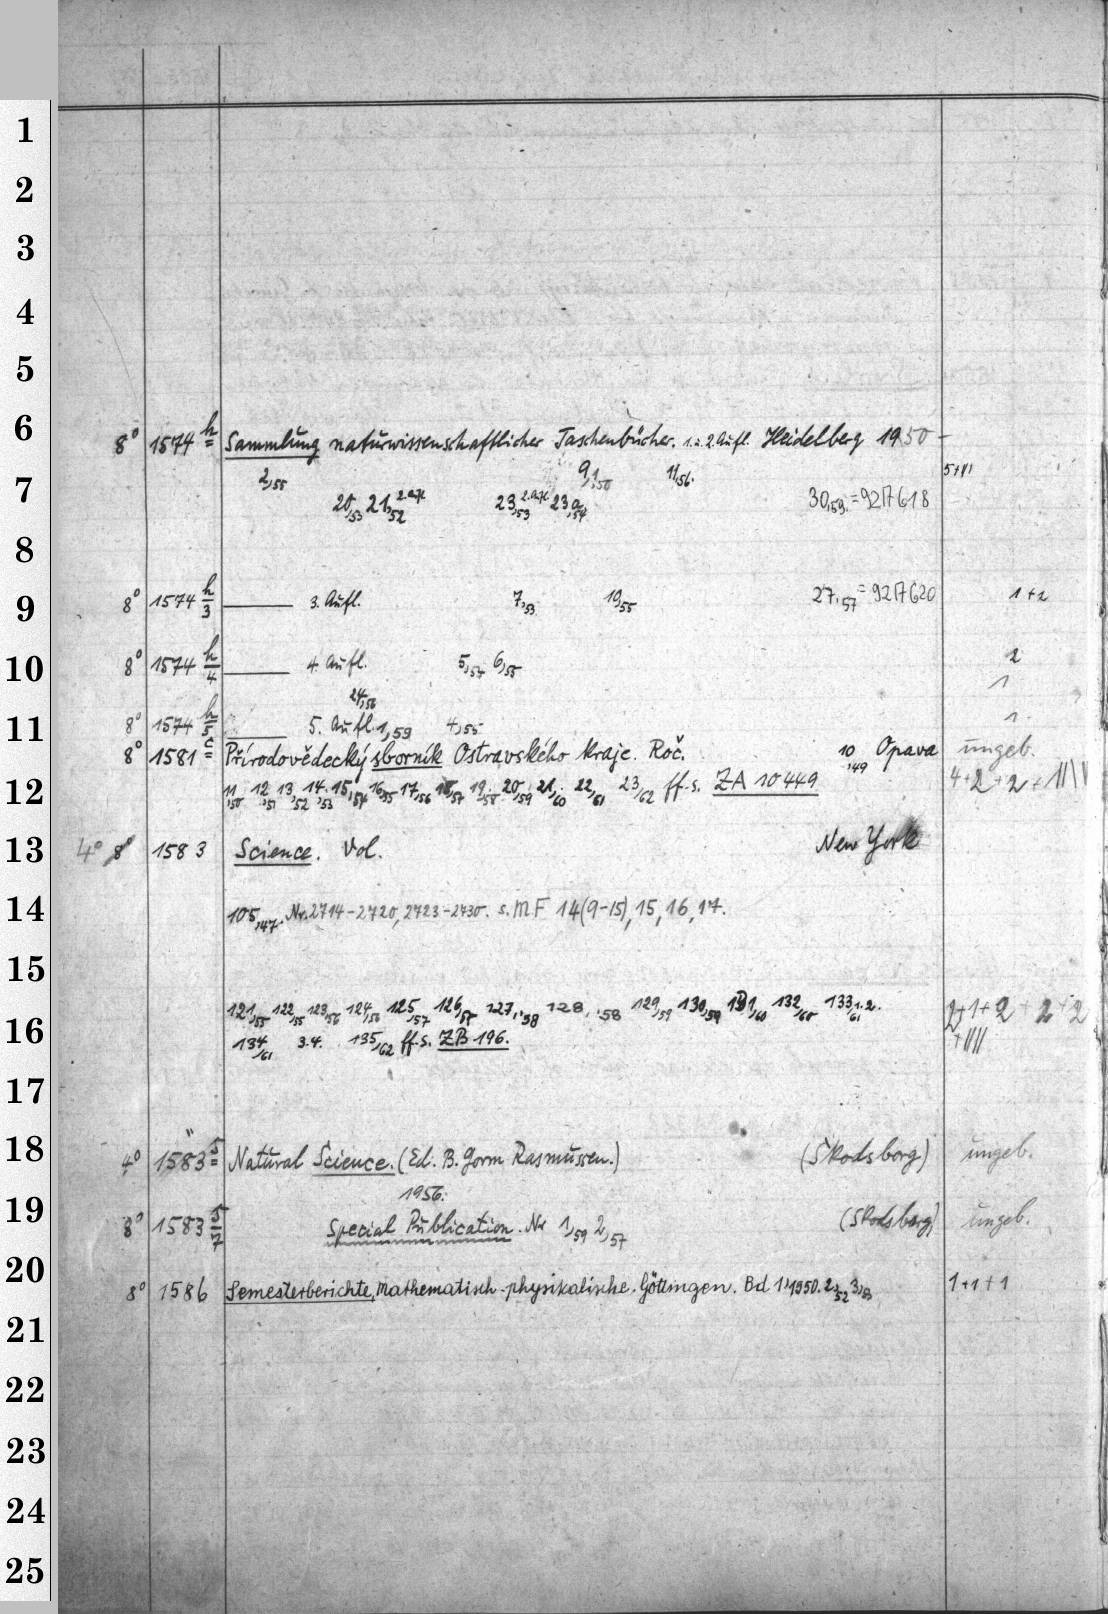 1
2
3
4
5
6
8° 1574 h Sammlung naturwissenschaftlicher Taschenbücher. 1. u. 2. Aufl. Heidelberg 1950 -
2,55 9,1,50 11,56. 5+III
7
20,53 21,52 2. Afl. 23,53 2. Afl. 23a,54 30,59. = 9217618
8
9
8° 1574 h/3 3. Aufl. 7,53 10,55 27,57 = 9217620 1+2
10
8° 1574 h/4 4. Aufl. 5,54 6,55 2
24,56 1
11
8° 1574 h/5 5. Aufl. 1,59 4,55 1
8° 1581 c Přírodovědecký sborník Ostravského kraje. Roč. 10,49 Opava ungeb.
12
11,50 12,51 13,52 14,53 15,54 16,55 17,56 18,57 19,58 20/59 21/60 22/61 23/62 ff. s. ZA 10449 4+2+2+
13
4° 8° 1583 Science. Vol. New York
14
105,47. Nr. 2714-2720, 2723-2730. s. MF 14(9-15), 15, 16, 17.
15
121,55 122,55 123,56 124,56 125,57 126,57 127,'58 128,'58 129/59 130,59 131/60 132/60 133/61 1.2. 2+1+2+2+2
16
134/61 3.4. 135/62 ff. s. ZB 196. +IIII
17
18
4° 1583 5 Natural Science. (Ed. B. Gorm Rasmussen.) (Skodsborg) ungeb.
1956.
19
8° 1583 5/7 Special Publication. Nr 1,59 2,57 (Skodsborg) ungeb.
20
8° 1586 Semesterberichte, Mathematisch-physikalische. Göttingen. Bd 1,1950. 2,52 3,53 1+1+1
21
22
23
24
25